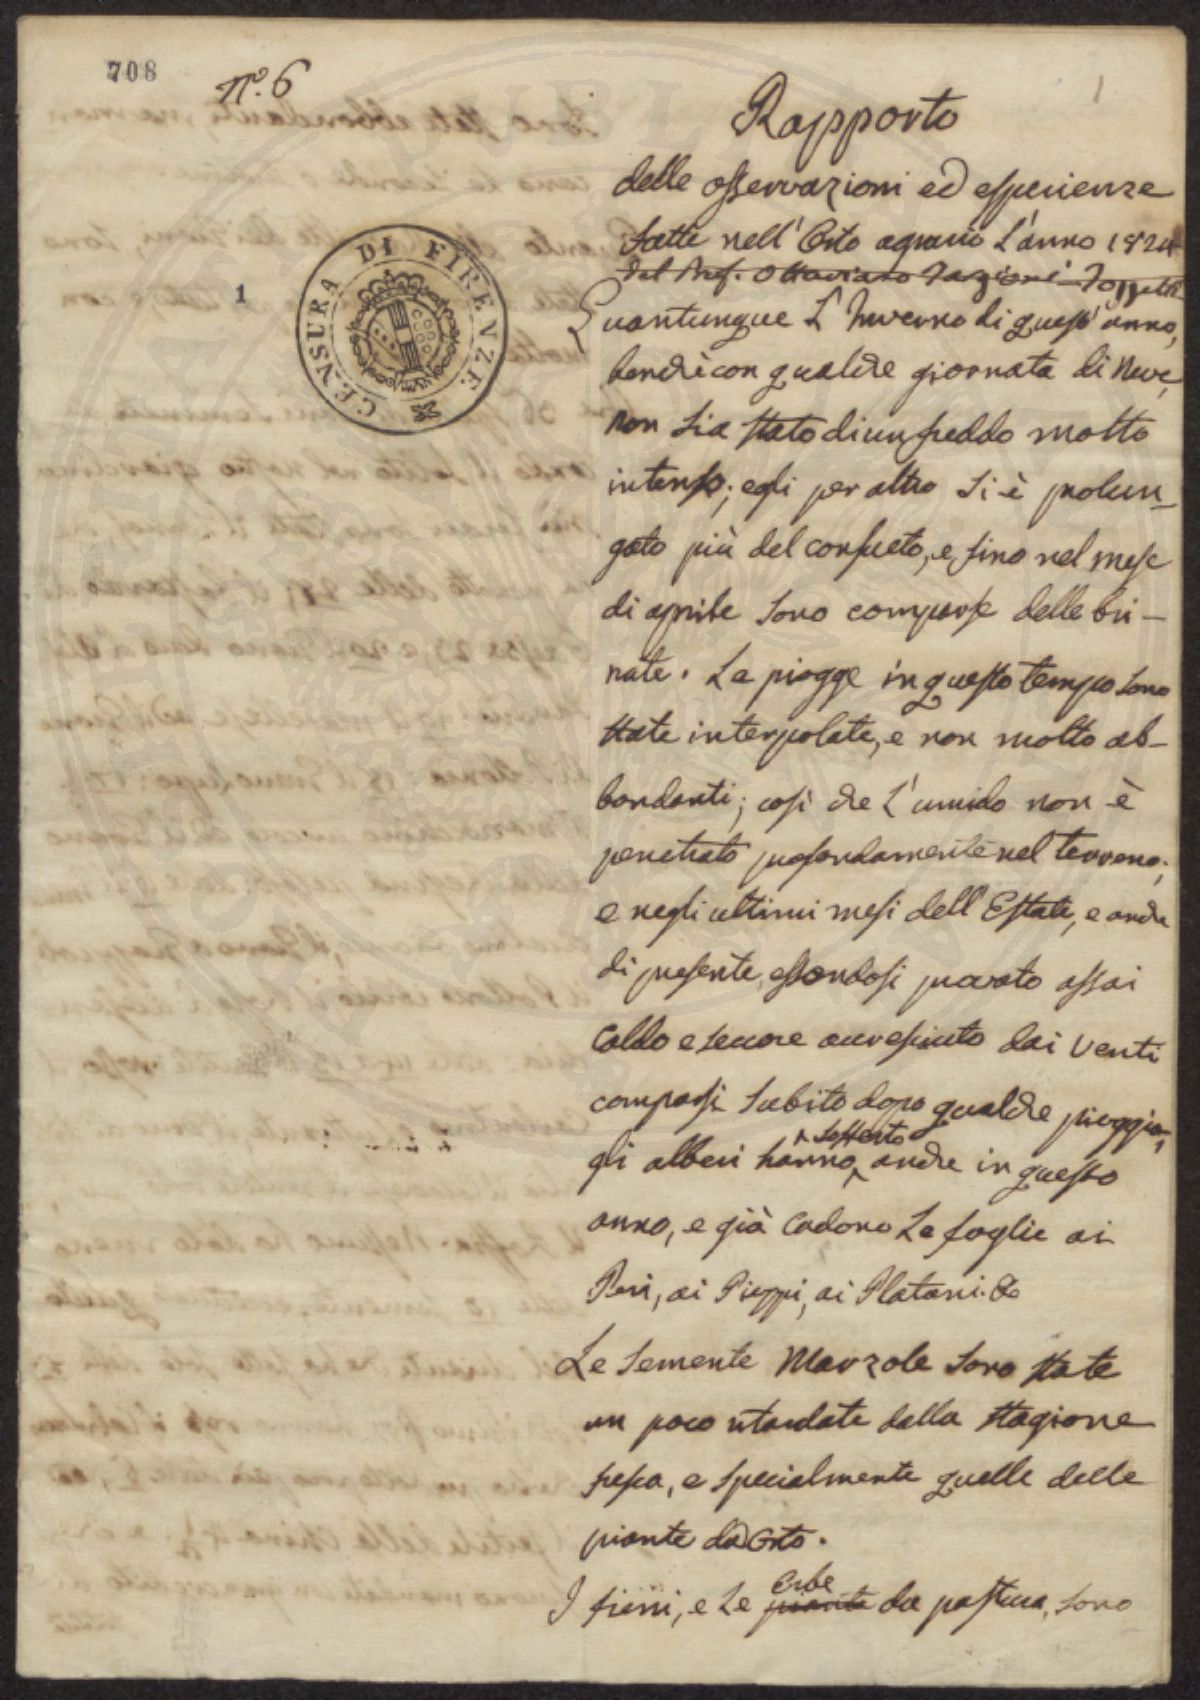 708
n.° 6
1
Rapporto
delle osservazioni ed esperienze
fatte nell'Orto agrario L'anno 1824
del Prof. Ottaviano Targioni-Tozzetti
1
CENSURA DI FIRENZE
Quantunque L'Inverno di quest'anno,
benchè con qualche giornata di Neve,
non sia stato di un freddo molto
intenso; egli per altro si è prolun-
gato più del consueto, e fino nel mese
di aprile sono comparse delle bri-
nate. Le piogge in questo tempo sono
state interpolate, e non molto ab-
bondanti; così che L'umido non è
penetrato profondamente nel terreno;
e negli ultimi mesi dell'Estate, e anche
di presente, essendosi provato assai
Caldo e seccore accresciuto dai Venti
comparsi subito dopo qualche pioggia,
sofferto
gli alberi hanno, anche in questo
anno, e già cadono Le foglie ai
Peri, ai Pioppi, ai Platani. &c
Le semente Marzole sono state
un poco ritardate dalla stagione
fresca, e specialmente quelle delle
piante da Orto.
erbe
I fieni, e Le piante da pastura, sono